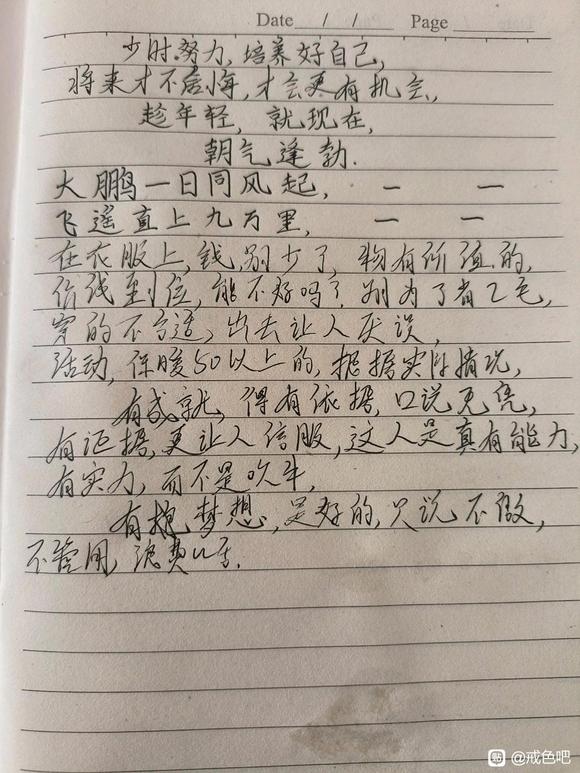 Date / / Page
少时努力,培养好自己,
将来才不后悔,才会更有机会,
趁年轻,就现在,
朝气逢勃.
大鹏一日同风起, — —
飞遥直上九万里, — —
在衣服上,钱,别少了,物有所值的,
价钱到位,能不好吗?别为了省乙毛,
穿的不合适,出去让人厌误,
活动,保暖50以上的,据据实际情况,
有成就,得有依据,口说无凭,
有证据,更让人信服,这人是真有能力,
有实力,而不是吹牛,
有抱梦想,是好的,只说不做,
不管用,浪费
@戒色吧